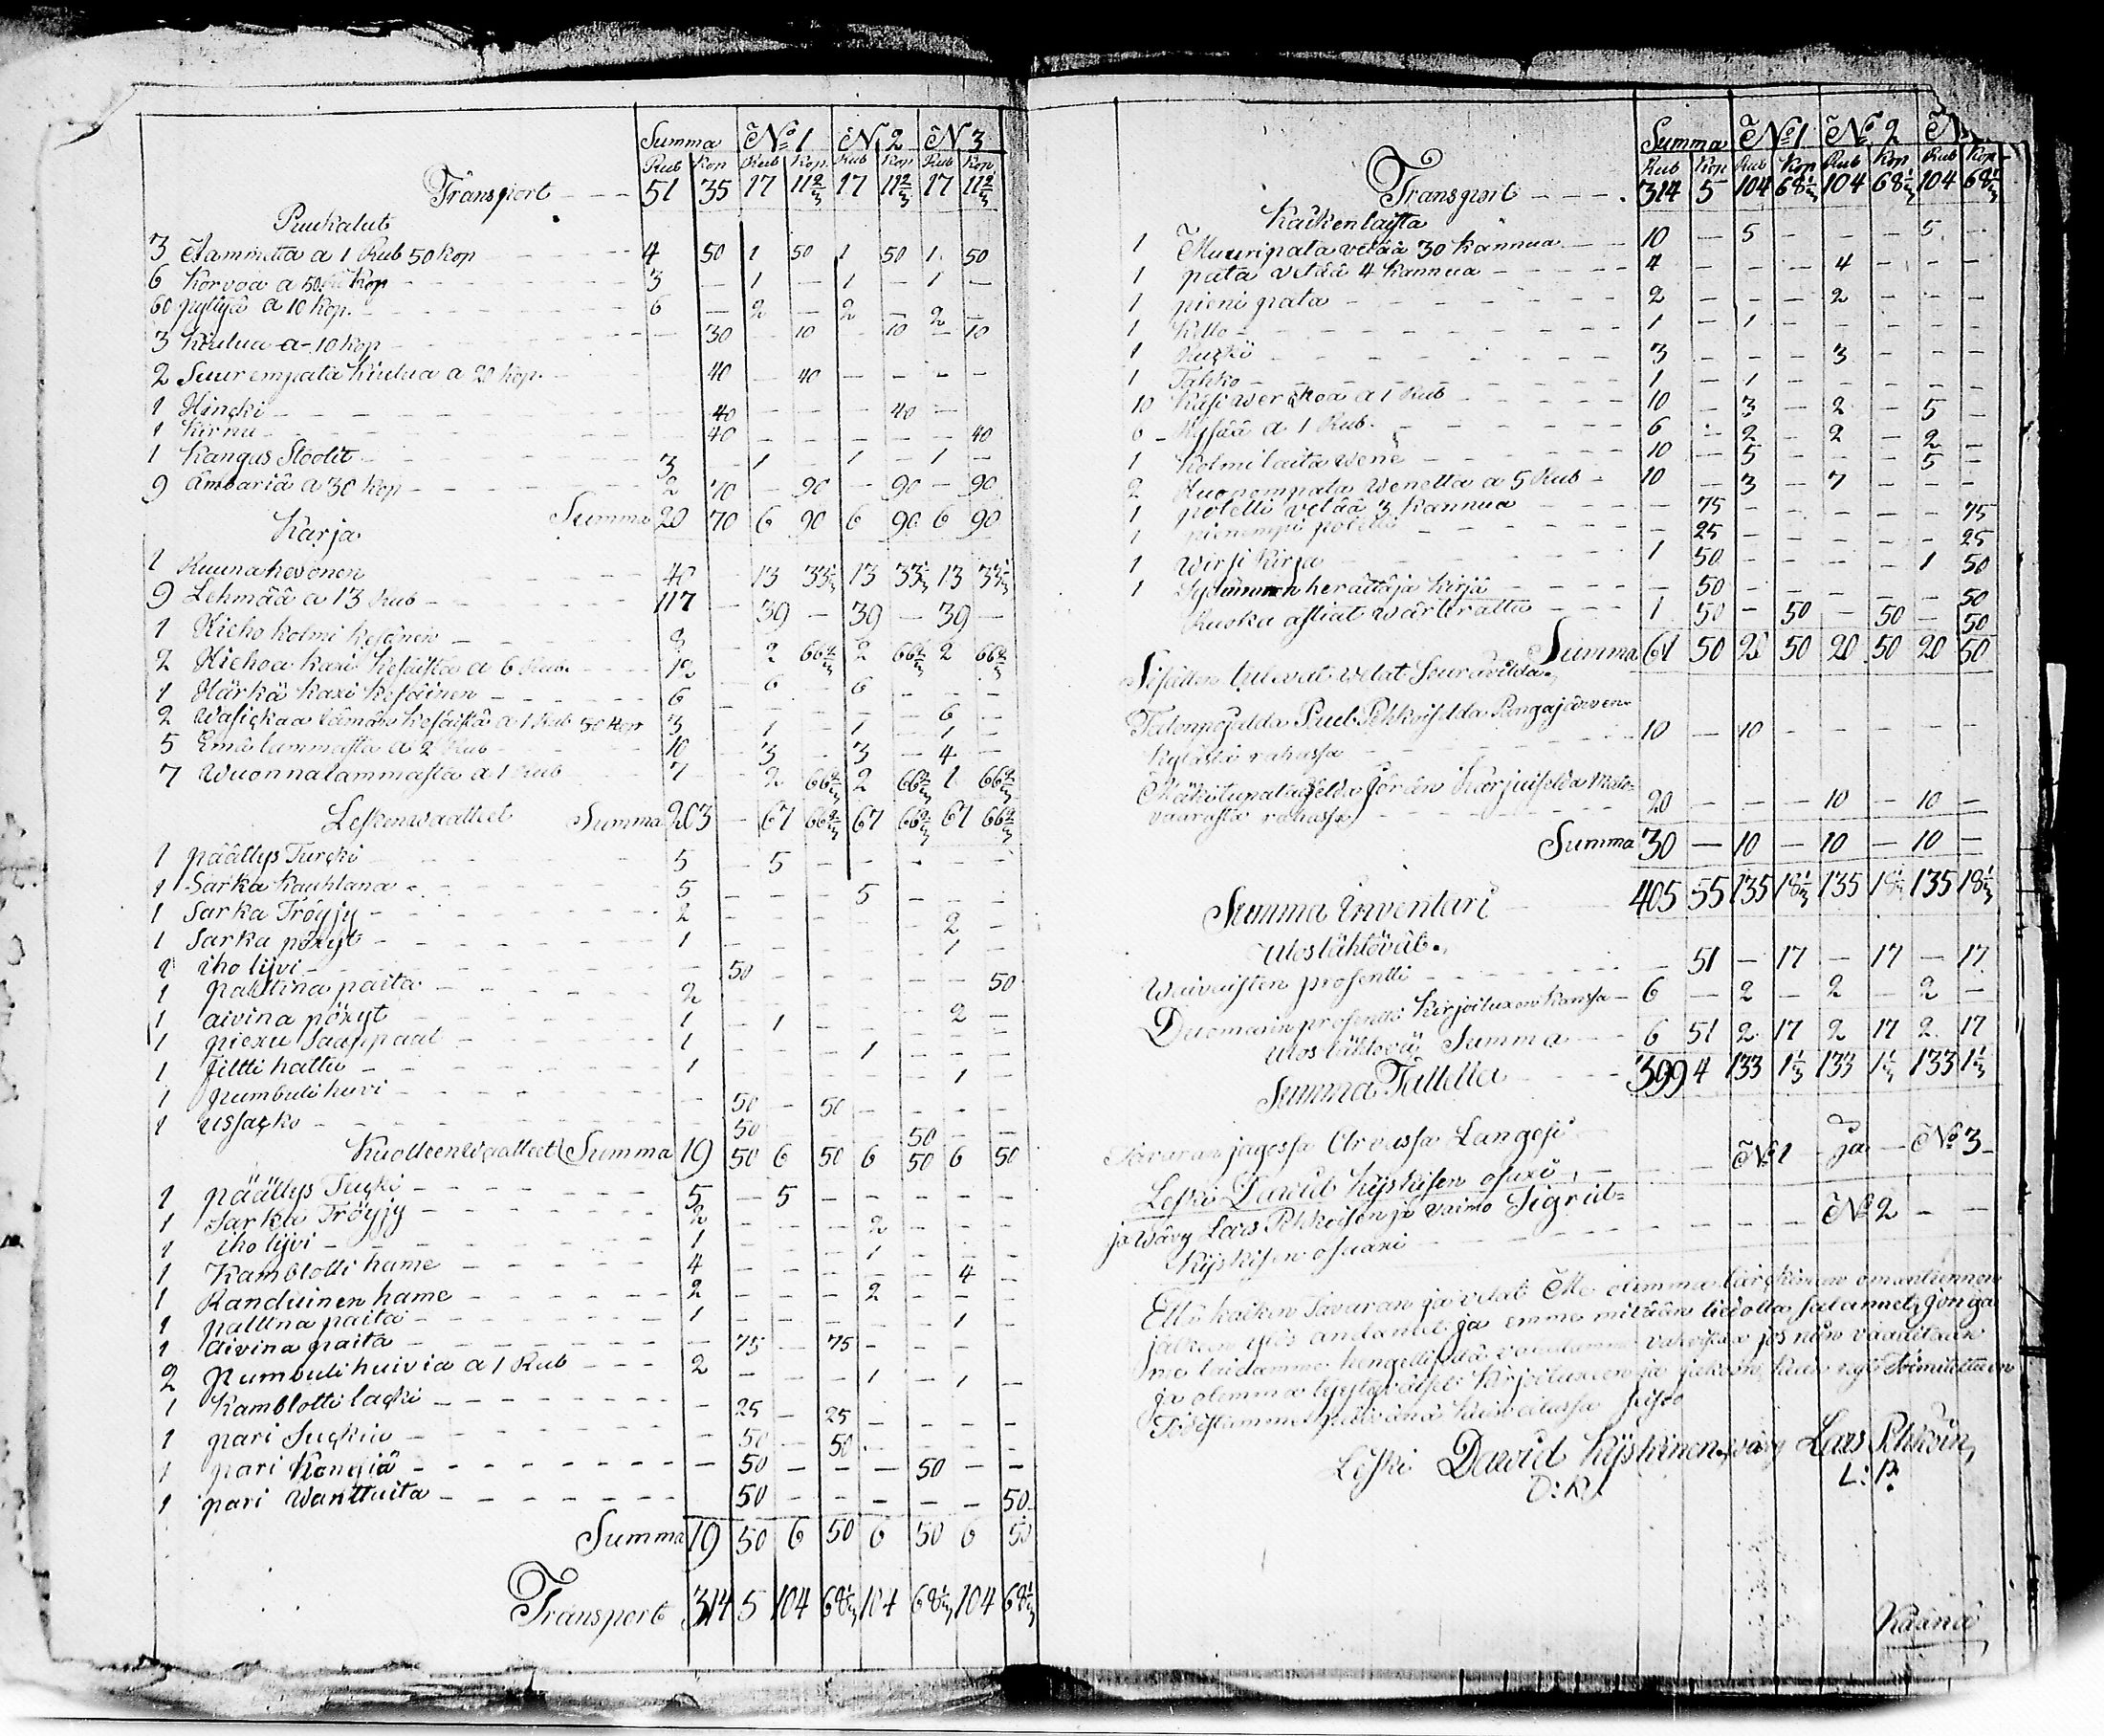 Summa N:o 1 N 2 N 3
Rub Kop Rub Kop Rub Kop Rub Kop
Transport 51 35 17 11 2/3 17 11 2/3 17 11 2/3
Puukalut
3 Tammitta a 1 Rub 50 kop 4 50 1 50 1 50 1 50
6 Korvoa a 50 Kop 3 — 1 — 1 — 1 —
60 pyttyä a 10 kop. 6 — 2 — 2 — 2 —
3 Kiulua a 10 kop — 30 — 10 — 10 — 10
2 Suurempata Kiulua a 20 kop. 40 — 40 — — — —
1 Hincki 40 — — — 40 —
1 Kirnu 40 — — — — — 40
1 Kangas Stoolit 3 — 1 — 1 — 1 —
9 Ämbäriä a 30 Kop 2 70 — 90 — 90 — 90
Summa 20 70 6 90 6 90 6 90
Karja
1 Ruuna hevonen 40 13 33 1/3 13 33 1/3 13 33 1/3
9 Lehmää a 13 Rub 117 — 39 — 39 — 39 —
1 Hieho kolmi kesänen 8 — 2 66 2/3 2 66 2/3 2 66 2/3
2 Hiehoa kaxi kesäistä a 6 Rub 12 6 — 6 — — —
1 Härkä kaxi kesäinen 6 — — — — — 6 —
2 Wasickaa tämän kesäistä a 1 Rub 50 kop 3 — 1 — 1 — 1 —
5 Emälammasta a 2 Rub 10 — 3 — 3 — 4 —
7 Wuonnalammasta a 1 Rub 7 — 2 66 2/3 2 66 2/3 1 66 2/3
Lesken waatteet Summa 203 — 67 66 2/3 67 66 2/3 67 66 2/3
1 päällys Turcki 5 — 5 — — — — —
1 Sarka kauhtana 5 — — — 5 — — —
1 Sarka Tröyjy 2 — — — — — 2 —
1 Sarka pöxyt 1 — — — — — 1 —
1 iho lijvi — 50 — — — — — 50
1 palttina paita 2 — — — — — 2 —
1 aivina pöxyt 1 — 1 — — — — —
1 piexu Saappaat 1 — — — 1 — — —
1 Filtti hattu 1 — — — — — 1 —
1 pumbuli huvi — 50 — 50 — — — —
1 ussacko 50 — — — 50 — —
Kuolleen Waatteet Summa 19 50 6 50 6 50 6 50
1 päällys Turcki 5 — 5 — — — — —
1 Sarka Tröyjy 2 — — — 2 — — —
1 iho lijvi 1 — — — 1 — — —
1 Kamblotti hame 4 — — — — — 4 —
1 Randuinen hame 2 — — — 2 — — —
1 palttna paita 1 — — — — — 1 —
1 Aivina paita — 75 — 75 — — — —
2 pumbuli huivia a 1 Rub 2 — — — 1 — 1 —
1 Kamblotti lacki — 25 — 25 — — — —
1 pari Suckia 50 50 — — — —
1 pari Kengiä 50 — — — 50 — —
1 pari Wanttuita 50 — — — — — 50
Summa 19 50 6 50 6 50 6 50
Transport 314 5 104 68 1/3 104 68 1/3 104 68 1/3
Summa N:o 1 N:o 2 N
Rub Kop Rub Kop Rub Kop Rub Kop
Transport 314 5 104 68 1/3 104 68 1/3 104 68 1/3
Kaikenlaista
1 Muuripata vetää 30 kannua 10 — 5 — — — 5 —
1 pata vetää 4 kannua 4 — — — 4 — — —
1 pieni pata 2 — — — 2 — — —
1 Kello 1 — 1 — — — — —
1 3 — — — 3 — — —
1 Tahko 1 — 1 — — — — —
10 Käsiwerckoa a 1 Rub 10 — 3 — 2 — 5 —
6 Rysää a 1 Rub. 6 — 2 — 2 — 2 —
1 Kolmilaita wene 10 — 5 — — — 5 —
2 Huonompata Wenettä a 5 Rub 10 — 3 — 7 — — —
1 potelli vetää 3 kannua — 75 — — — — — 75
1 pienempi potelli — 25 — — — — — 25
1 Wirsi Kirja 1 50 — — — — 1 50
1 Sydämmen herättäjä Kirja — 50 — — — — — 50
Ruoka astiat 1 50 — 50 — 50 — 50
Summa 61 50 20 50 20 50 20 50
Sisälle tulevat Welat Seuravilda
Talonpojalda Puel Pehkoiselda Pengajärven
Kylästä rahassa 10 — 10 — — — — —
Mäkitupalaiselda Jören Karjuiselda Mato-
vaarasta rahassa 20 — — — 10 — 10 —
Summa 30 — 10 — 10 — 10 —
Summa inventari 405 55 135 18 1/3 135 18 1/3 135 18 1/3
Ulos lähtövät.
Waivaisten prosentti — 51 — 17 — 17 — 17
Duomarin prosentti Kirjoituxen kanssa 6 — 2 — 2 — 2 —
Ulos lähtevä Summa 6 51 2 17 2 17 2 17
Summa Tallella 399 4 133 1 1/3 133 1 1/3 133 1 1/3
Tavaran jagossa Arvassa Langesi
Leski Dawid Kijskisen osaxi N:o 1 ja N:o 3
ja Wävy Lars Pehkoisen ja vaimo Sigrid
Kijskisen osaxi N:o 2
Että kaiken Tavaran ja velat Me olemma omantunnon
jälken ylös andanet ja emme mitään tiedolla salannet, jonga
me taidamme hengellisellä valalamme vahvistaa jos niin vaaditaan
ja olemma tyytyväiset Kirjoituxeen ja jakoon kuin nyt toimitettiin
Todistamme
Leski Dawid Kijskinen, wävy Lars Pehkoin,
D: K: L: P:
Käänä